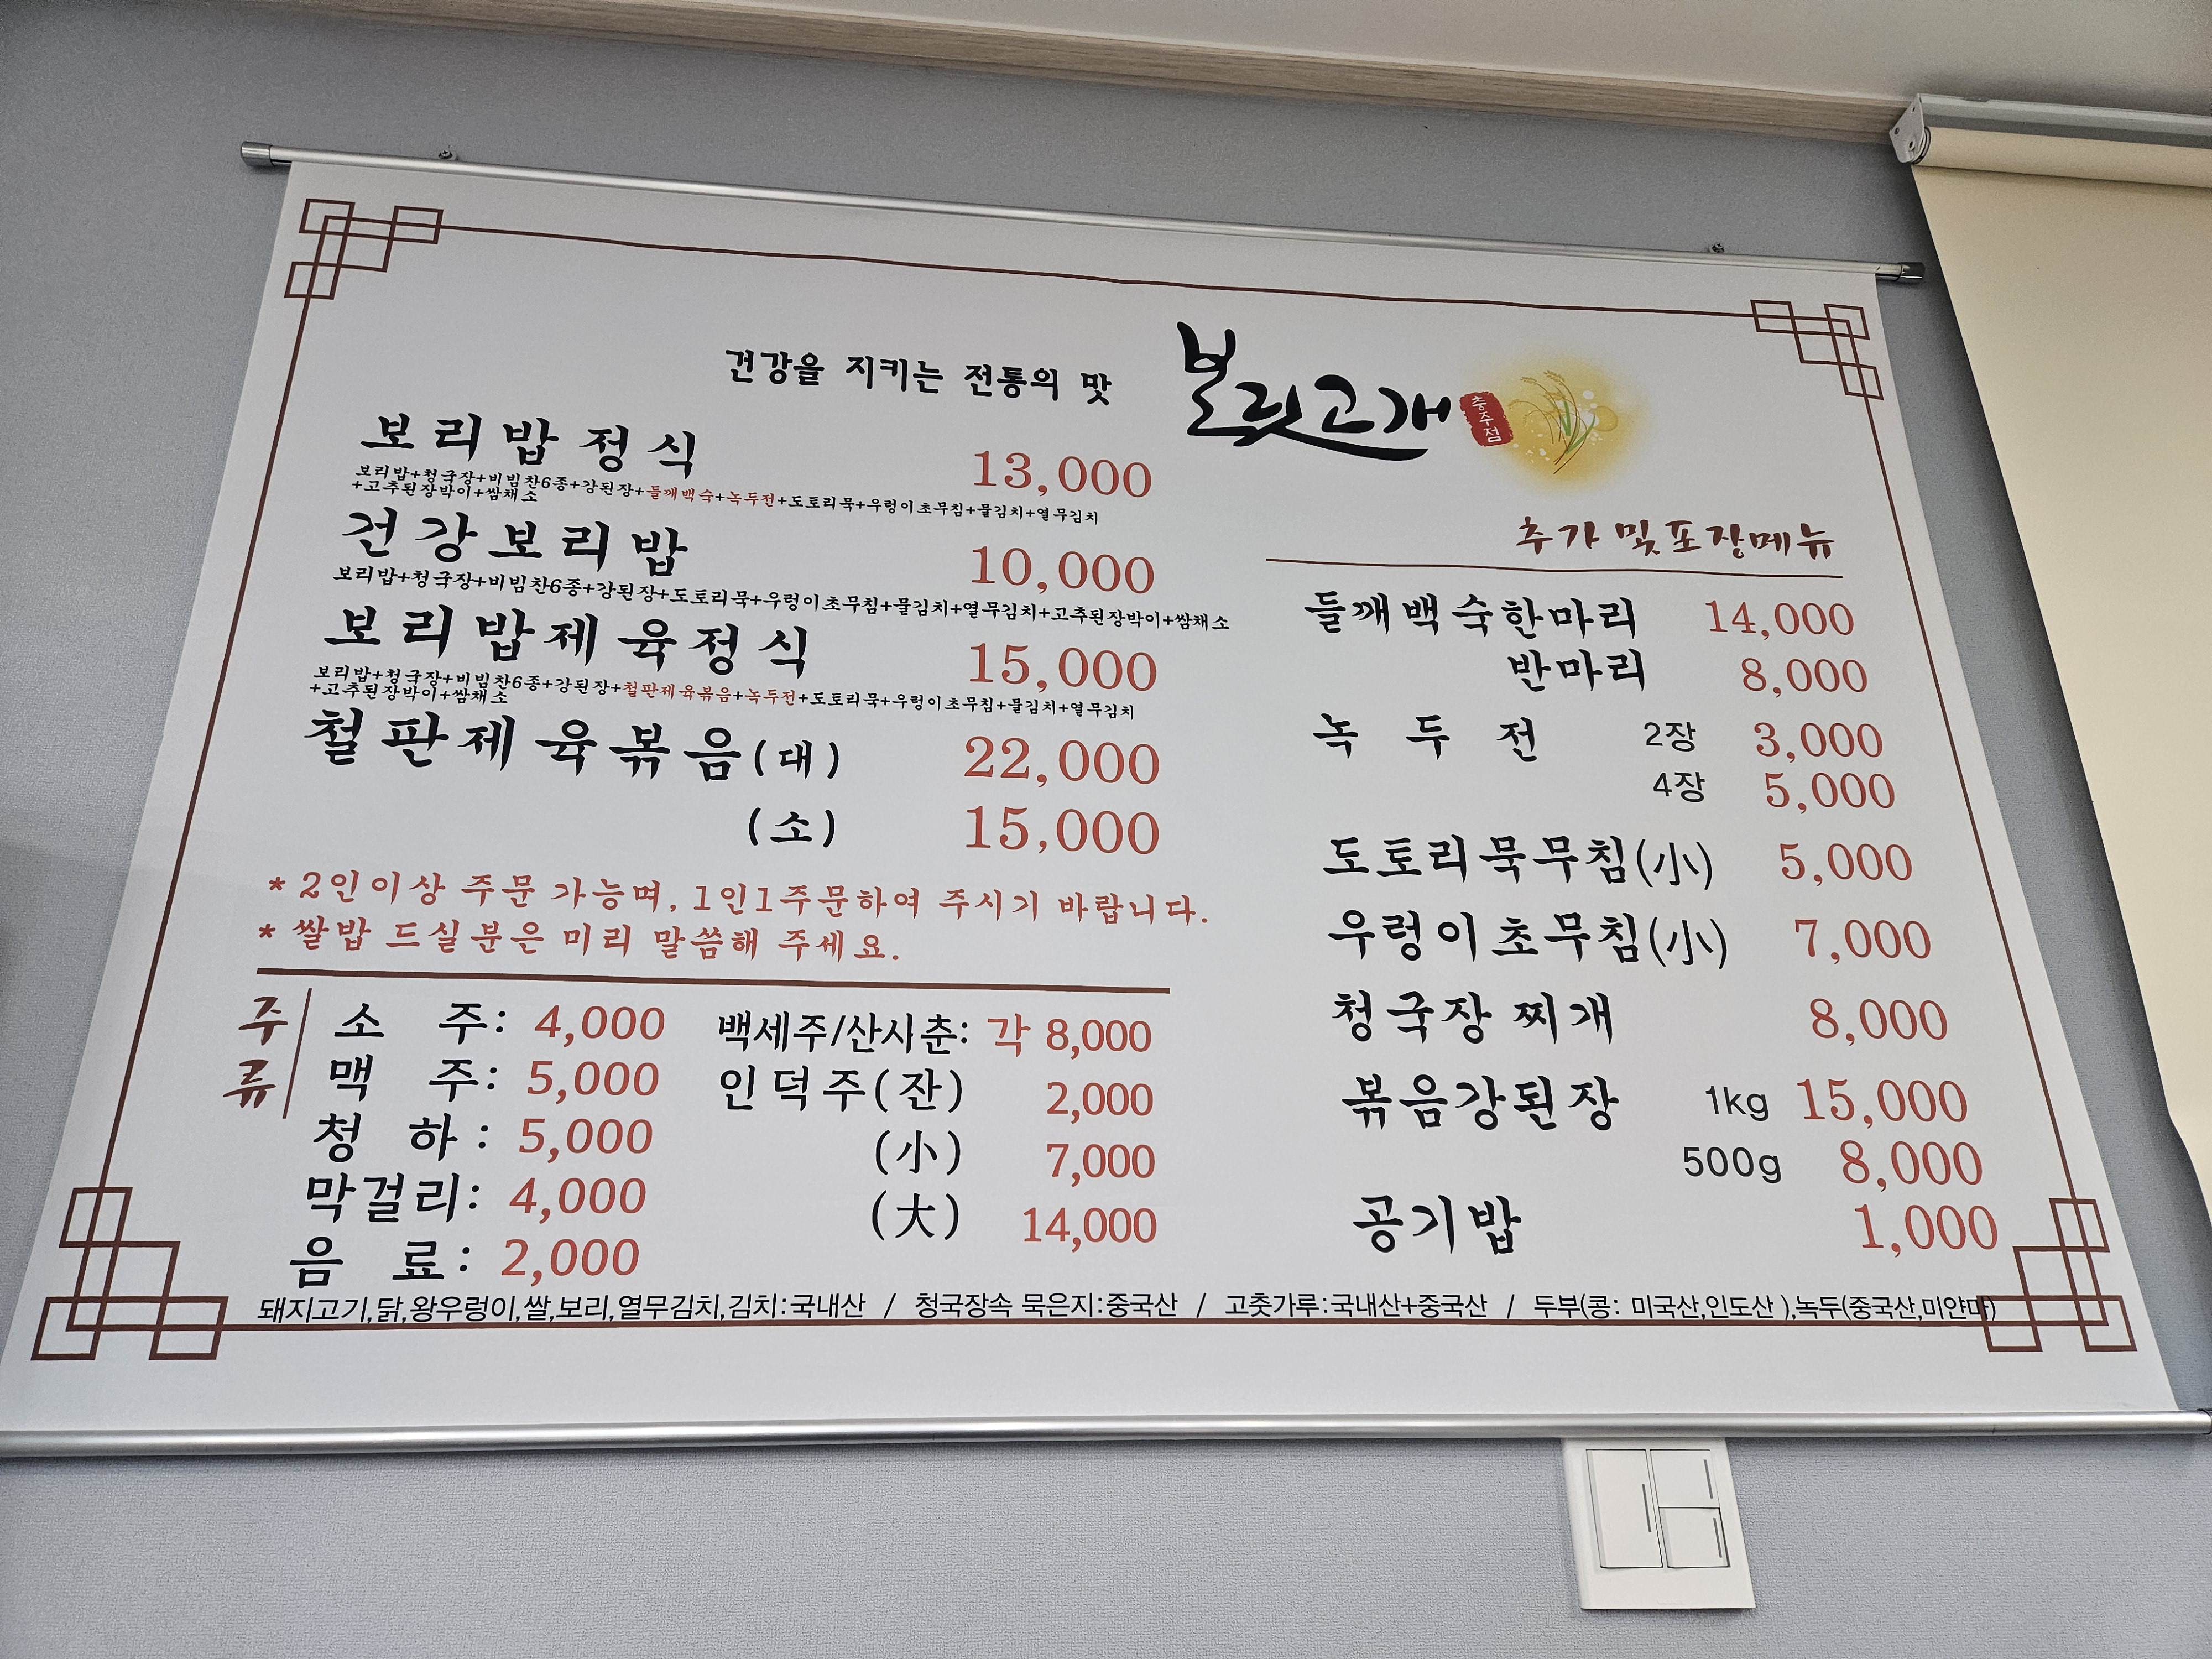 건강을 지키는 전통의 맛
보릿고개
충주점
보리밥 정식 13,000
보리밥+청국장+비빔찬6종+강된장+들깨백숙+녹두전+도토리묵+우렁이초무침+물김치+열무김치
+고추된장박이+쌈채소
건강보리밥 10,000
보리밥+청국장+비빔찬6종+강된장+도토리묵+우렁이초무침+물김치+열무김치+고추된장박이+쌈채소
보리밥제육정식 15,000
보리밥+청국장+비빔찬6종+강된장+철판제육볶음+녹두전+도토리묵+우렁이초무침+물김치+열무김치
+고추된장박이+쌈채소
철판제육볶음(대) 22,000
(소) 15,000
* 2인이상 주문 가능며, 1인1주문하여 주시기 바랍니다.
* 쌀밥 드실분은 미리 말씀해 주세요.
주류
소 주: 4,000
맥 주: 5,000
청 하: 5,000
막걸리: 4,000
음 료: 2,000
백세주/산사춘: 각 8,000
인덕주(잔) 2,000
(小) 7,000
(大) 14,000
추가 및 포장메뉴
들깨백숙한마리 14,000
반마리 8,000
녹 두 전 2장 3,000
4장 5,000
도토리묵무침(小) 5,000
우렁이초무침(小) 7,000
청국장 찌개 8,000
볶음강된장 1kg 15,000
500g 8,000
공기밥 1,000
돼지고기,닭,왕우렁이,쌀,보리,열무김치,김치:국내산 / 청국장속 묵은지:중국산 / 고춧가루:국내산+중국산 / 두부(콩: 미국산,인도산 ),녹두(중국산,미얀마)